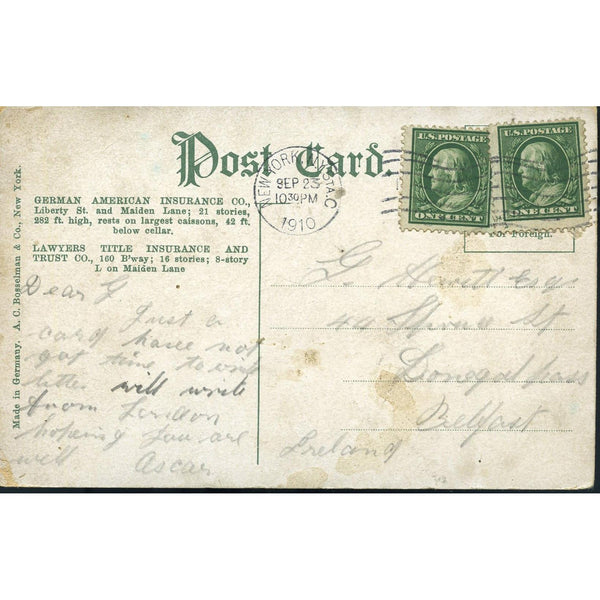 Post Card.
GERMAN AMERICAN INSURANCE CO.,
Liberty St. and Maiden Lane; 21 stories,
282 ft. high, rests on largest caissons, 42 ft.
below cellar.
LAWYERS TITLE INSURANCE AND
TRUST CO., 160 B'way; 16 stories; 8-story
L on Maiden Lane
Made in Germany. A. C. Bosselman & Co., New York.
NEW YORK, N.Y. STA. C
SEP 23
10 30 PM
1910
U.S. POSTAGE
ONE CENT
U.S. POSTAGE
ONE CENT
For Foreign.
Dear G
Just a
card have not
got time to
letter will write
from London
hoping you are
well
Oscar
G.
44 St
Donegal Pass
Belfast
Ireland